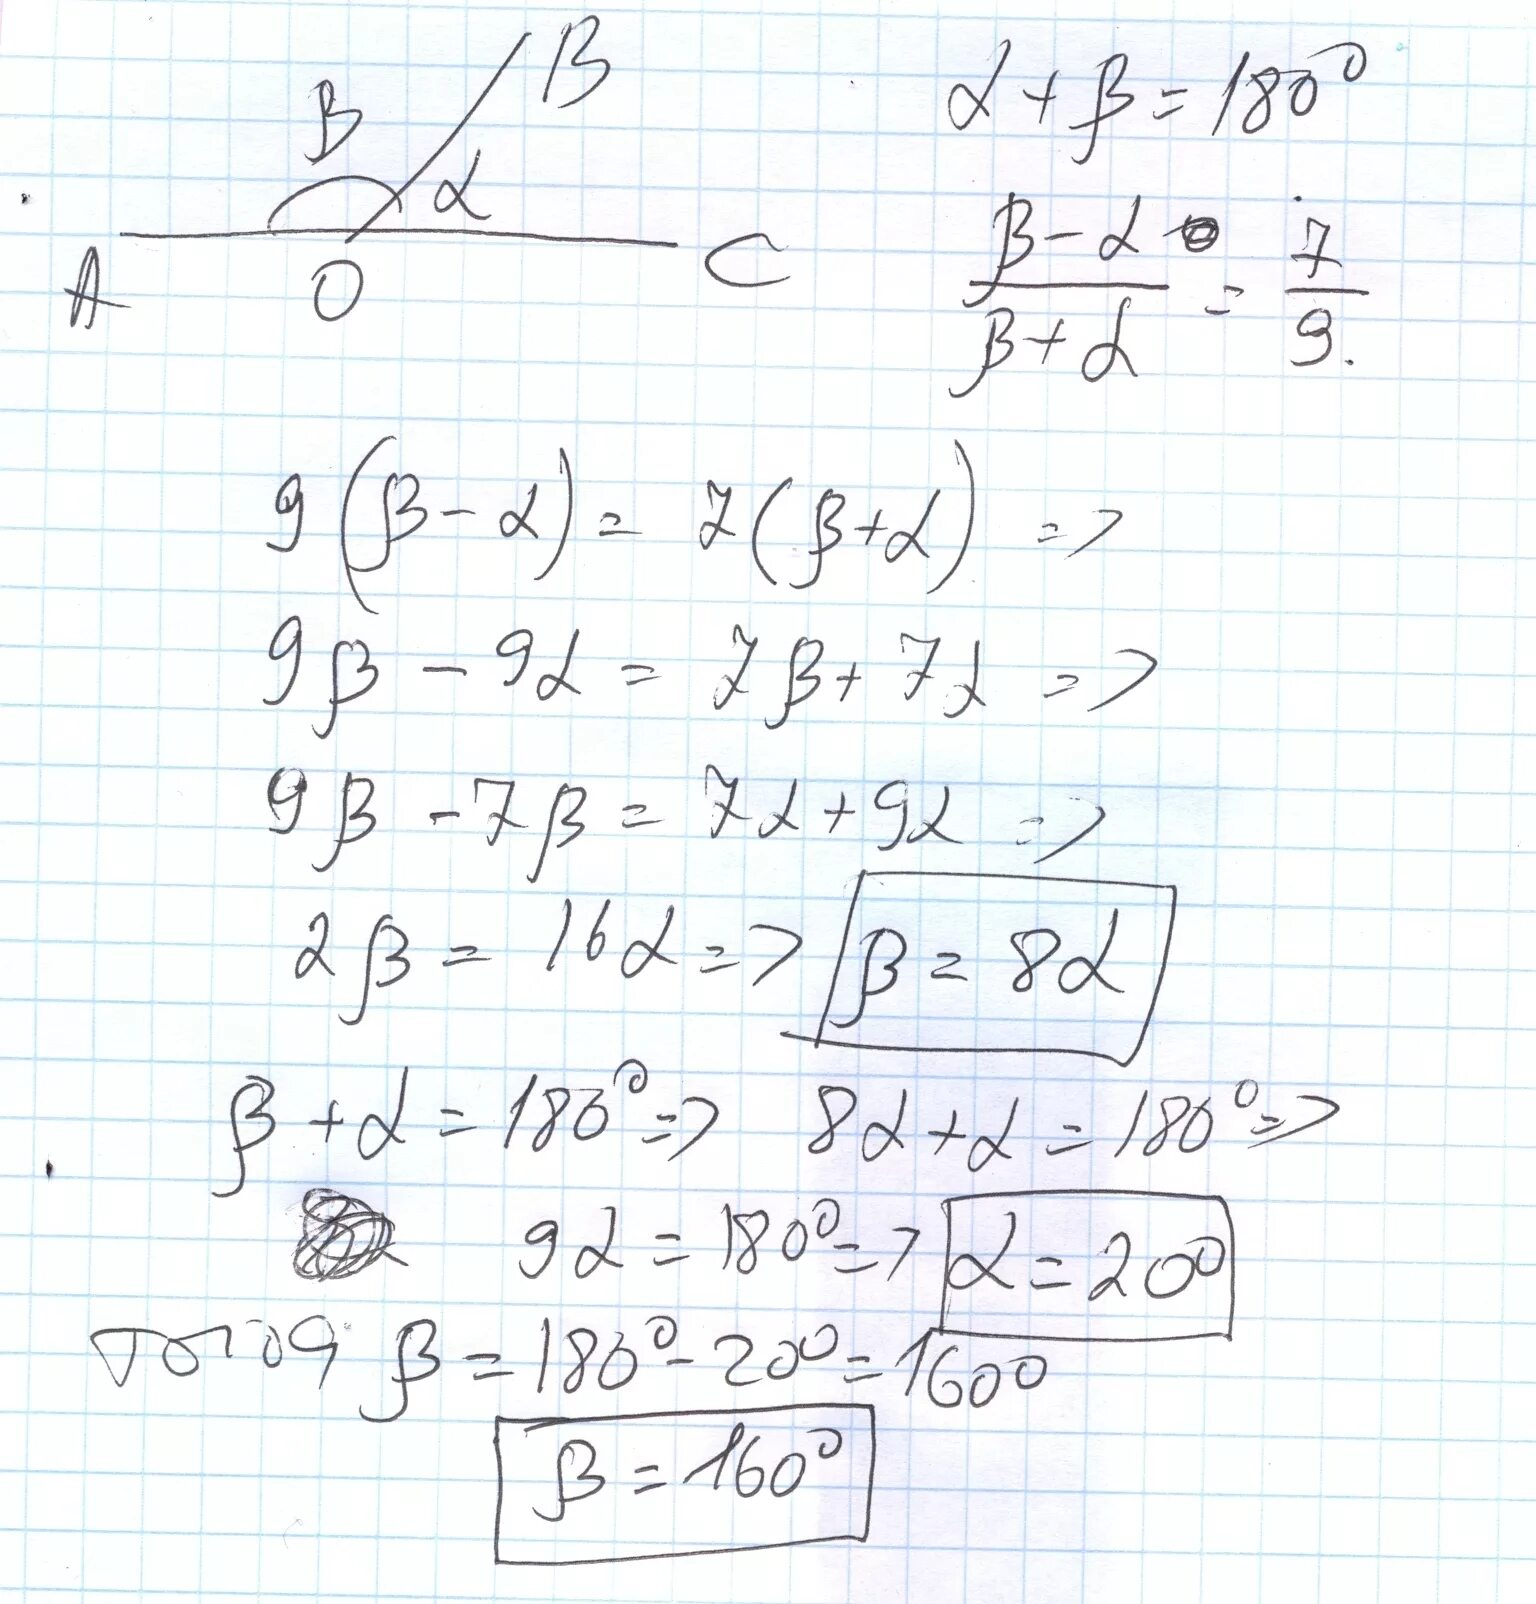 B
β
α
A
O
C
α + β = 180°
β - α / β + α = 7 / 9.
9 (β - α) = 7 (β + α) =>
9β - 9α = 7β + 7α =>
9β - 7β = 7α + 9α =>
2β = 16α => β = 8α
β + α = 180° => 8α + α = 180° =>
9α = 180° => α = 20°
тогда β = 180° - 20° = 160°
β = 160°